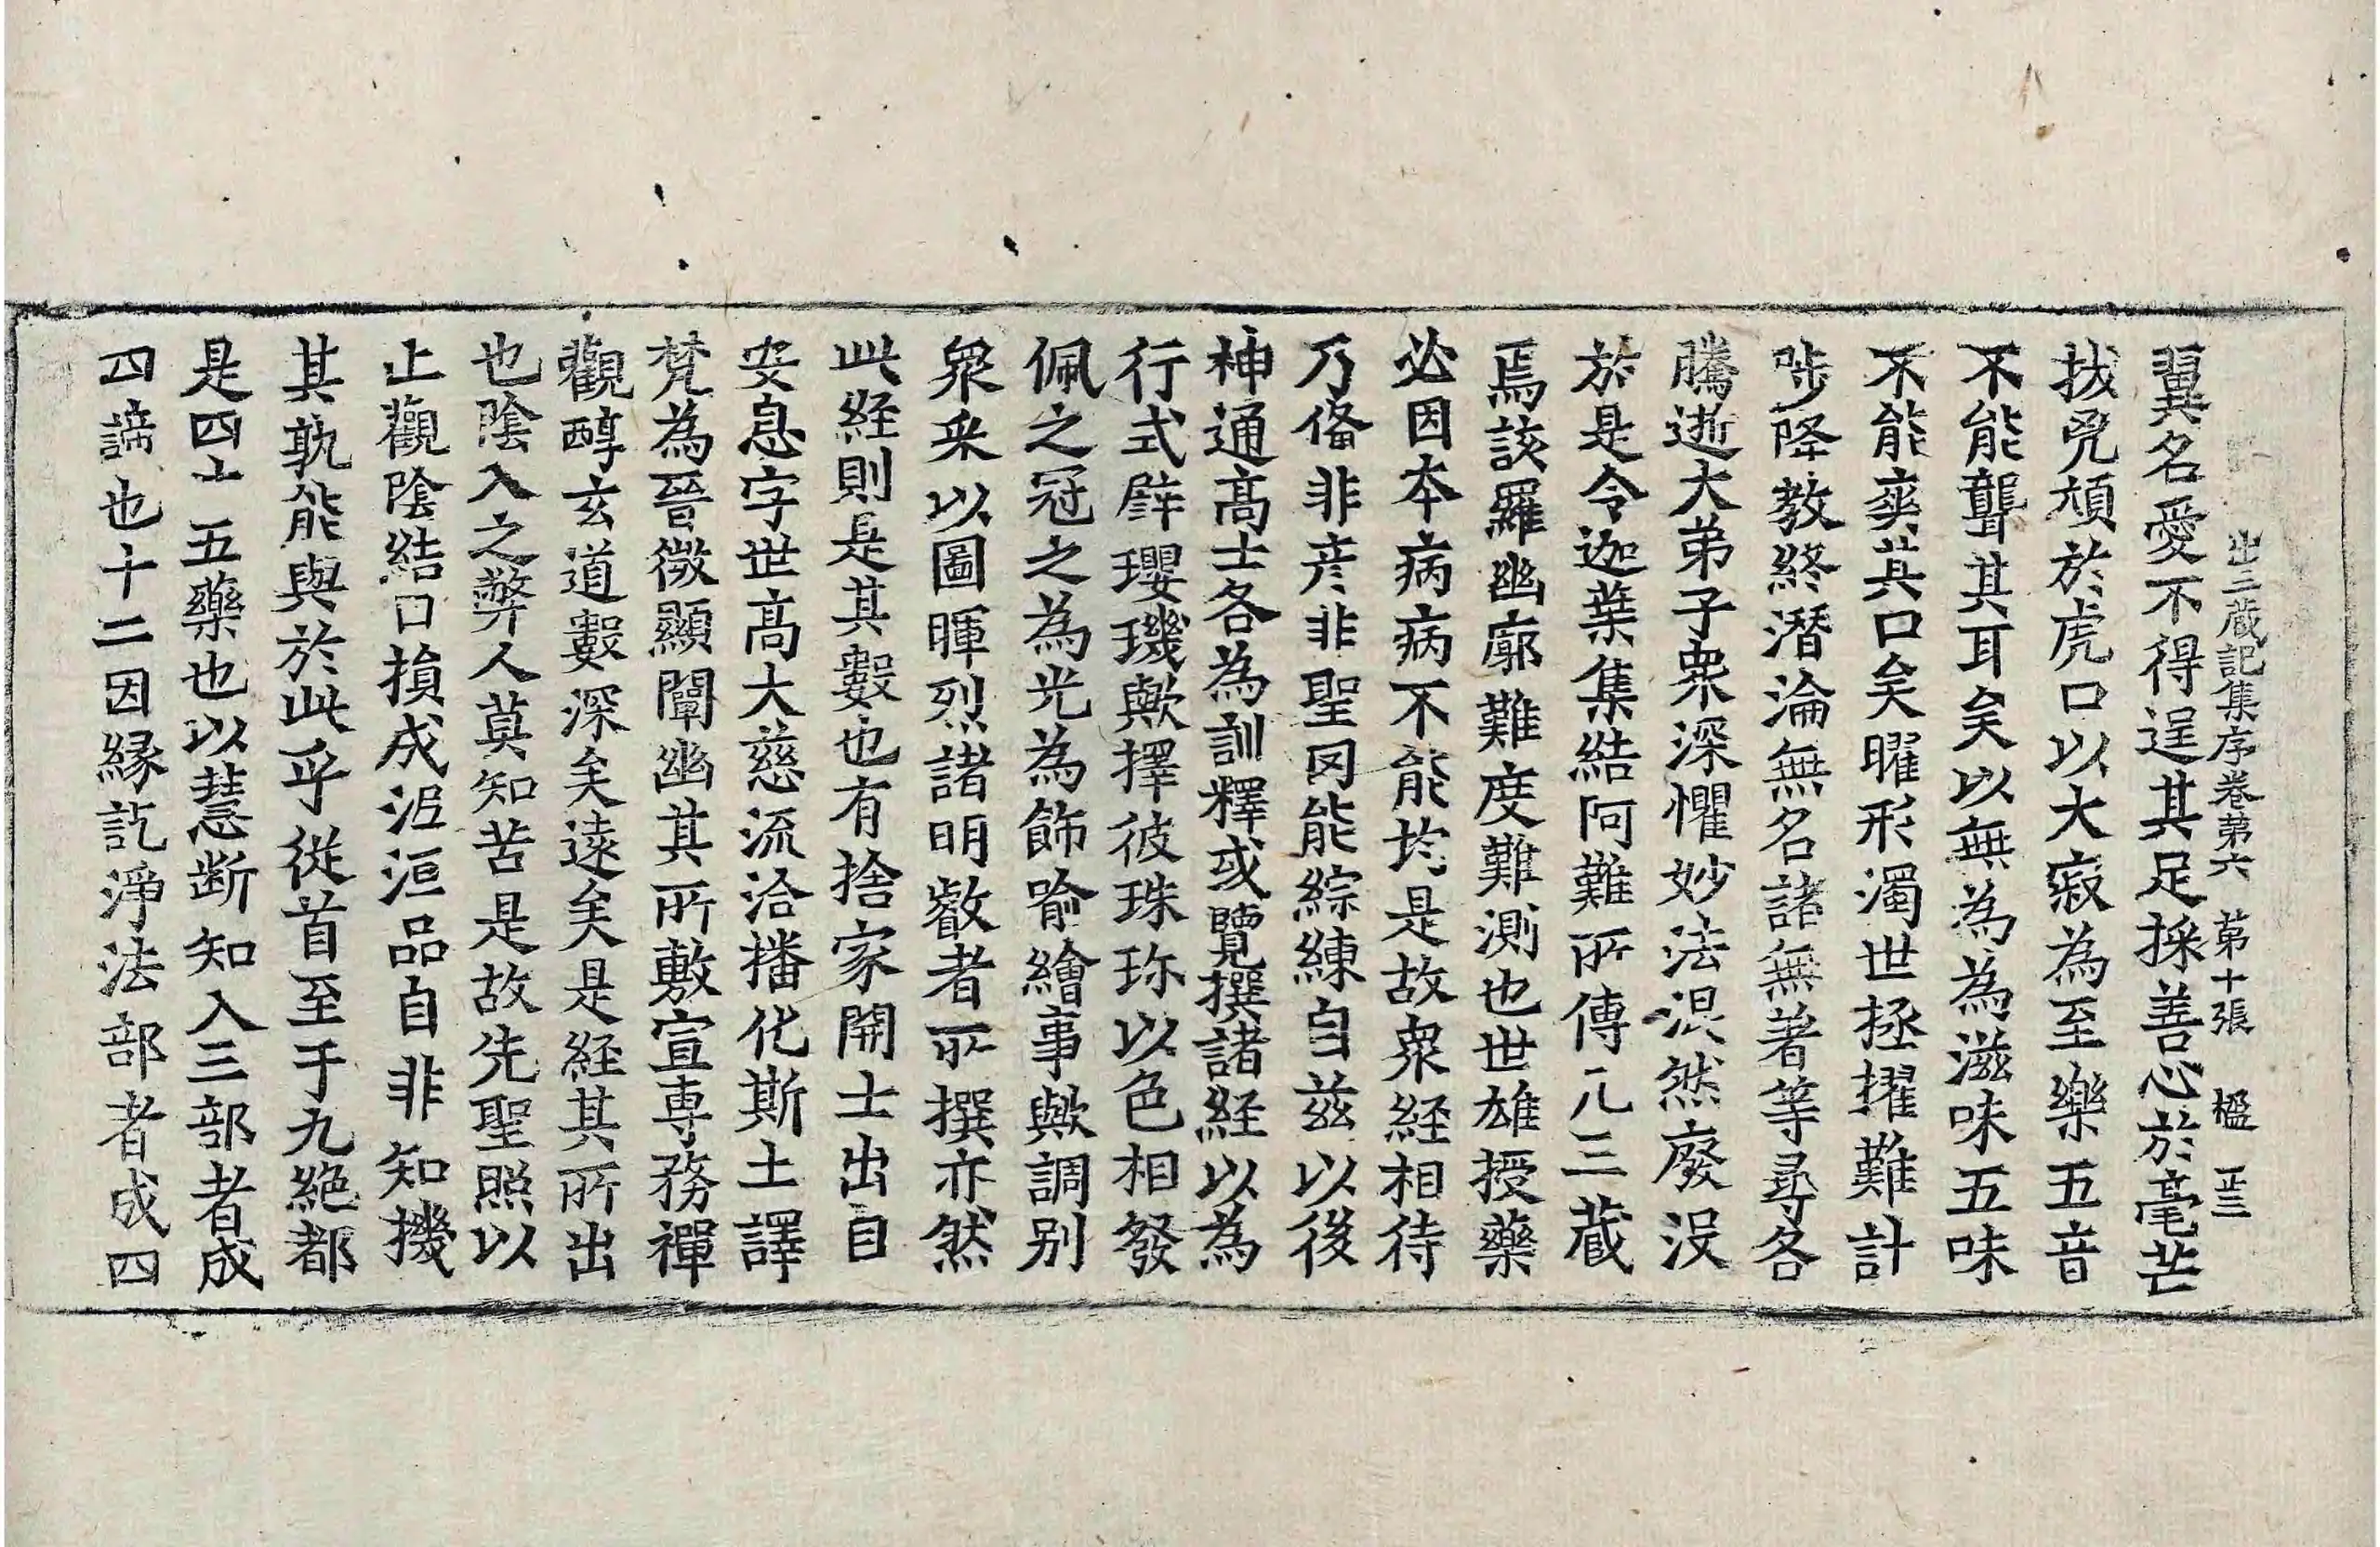 出三藏記集序卷第六 第十張 楹 正三
翼名愛不得逞其足採善心於毫芒
拔凳頏於虎口以大寂為至樂五音
不能聾其耳矣以無為為滋味五味
不能爽其口矣曜形濁世拯擢難計
陟降教終潛淪無名諸無著等尋各
騰逝大弟子衆深懼妙法混然廢没
於是令迦葉集結阿難所傳凡三藏
焉該羅幽廓難度難測也世雄授藥
必因本病病不能均是故衆経相待
乃俻非彦非聖罔能綜練自茲以後
神通髙士各為訓釋或覽撰諸経以為
行式辟瓔璣歟擇彼珠珎以色相發
佩之冠之為光為飾喻繪事歟調别
衆采以圖暉烈諸明叡者所撰亦然
此経則是其數也有捨家開士出自
安息字世髙大慈流洽播化斯土譯
梵為晉微顯闡幽其所敷宣専務禪
觀醇玄道數深矣遠矣是経其所出
也陰入之弊人莫知苦是故先聖照以
止觀陰結日損成泥洹品自非知機
其孰能與於此乎從首至于九絶都
是四十五藥也以慧断知入三部者成
四諦也十二因縁訖淨法部者成四